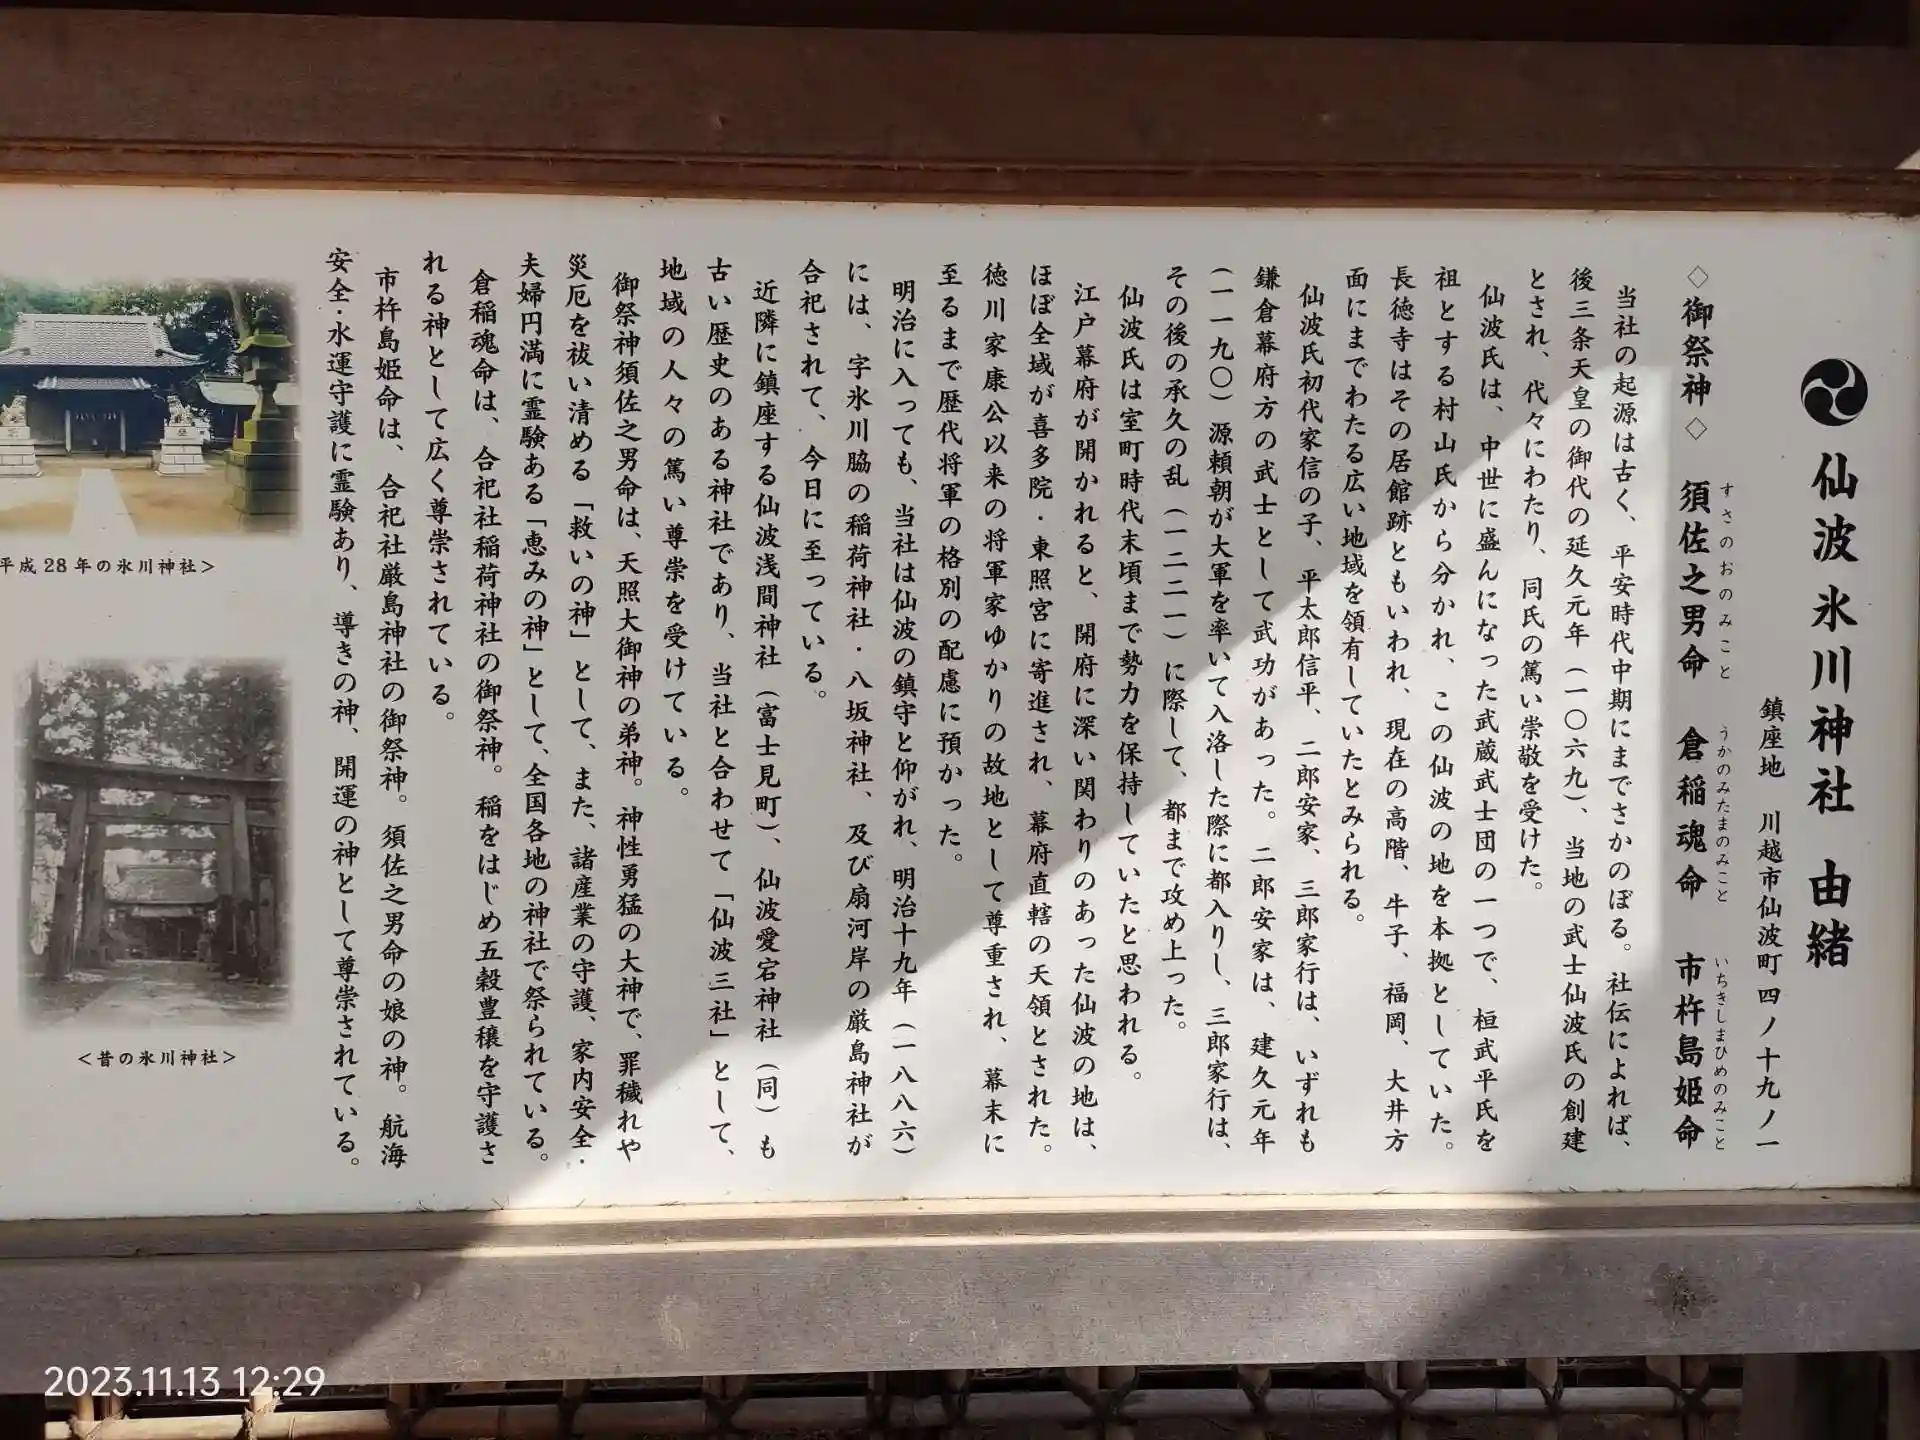 仙波氷川神社 由緒
鎮座地 川越市仙波町四ノ十九ノ一
◇御祭神◇ 須佐之男命 倉稲魂命 市杵島姫命
すさのおのみこと うかのみたまのみこと いちきしまひめのみこと
当社の起源は古く、平安時代中期にまでさかのぼる。社伝によれば、
後三条天皇の御代の延久元年（一〇六九）、当地の武士仙波氏の創建
とされ、代々にわたり、同氏の篤い崇敬を受けた。
仙波氏は、中世に盛んになった武蔵武士団の一つで、桓武平氏を
祖とする村山氏から分かれ、この仙波の地を本拠としていた。
長徳寺はその居館跡ともいわれ、現在の高階、牛子、福岡、大井方
面にまでわたる広い地域を領有していたとみられる。
仙波氏初代家信の子、平太郎信平、二郎安家、三郎家行は、いずれも
鎌倉幕府方の武士として武功があった。二郎安家は、建久元年
（一一九〇）源頼朝が大軍を率いて入洛した際に都入りし、三郎家行は、
その後の承久の乱（一二二一）に際して、都まで攻め上った。
仙波氏は室町時代末頃まで勢力を保持していたと思われる。
江戸幕府が開かれると、開府に深い関わりのあった仙波の地は、
ほぼ全域が喜多院・東照宮に寄進され、幕府直轄の天領とされた。
徳川家康公以来の将軍家ゆかりの故地として尊重され、幕末に
至るまで歴代将軍の格別の配慮に預かった。
明治に入っても、当社は仙波の鎮守と仰がれ、明治十九年（一八八六）
には、字氷川脇の稲荷神社・八坂神社、及び扇河岸の厳島神社が
合祀されて、今日に至っている。
近隣に鎮座する仙波浅間神社（富士見町）、仙波愛宕神社（同）も
古い歴史のある神社であり、当社と合わせて「仙波三社」として、
地域の人々の篤い尊崇を受けている。
御祭神須佐之男命は、天照大御神の弟神。神性勇猛の大神で、罪穢れや
災厄を祓い清める「救いの神」として、また、諸産業の守護、家内安全・
夫婦円満に霊験ある「恵みの神」として、全国各地の神社で祭られている。
倉稲魂命は、合祀社稲荷神社の御祭神。稲をはじめ五穀豊穣を守護さ
れる神として広く尊崇されている。
市杵島姫命は、合祀社厳島神社の御祭神。須佐之男命の娘の神。航海
安全・水運守護に霊験あり、導きの神、開運の神として尊崇されている。
平成28年の氷川神社＞
＜昔の氷川神社＞
2023.11.13 12:29